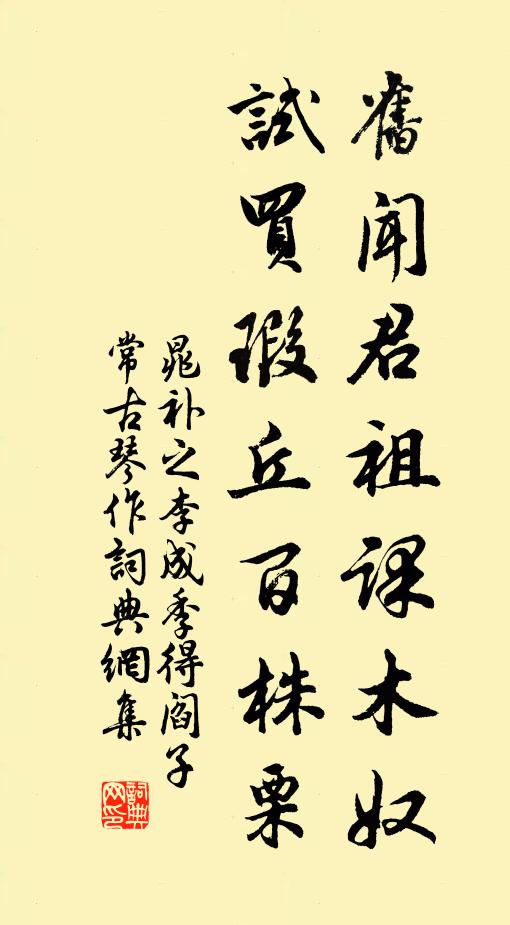 舊聞君祖課木奴
試買瑕丘百株栗
晁补之李成季得阎子
常古琴作詞典網集
詞典
网印